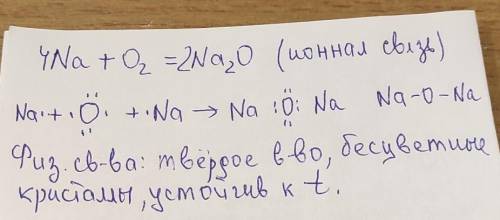 4Na + O₂ = 2Na₂O (ионнал свлзь)
Na· + ·Ö· + ·Na → Na :Ö: Na Na-O-Na
Физ. св-ва: твёрдое в-во, бесцветные
кристалы, устойчив к t.